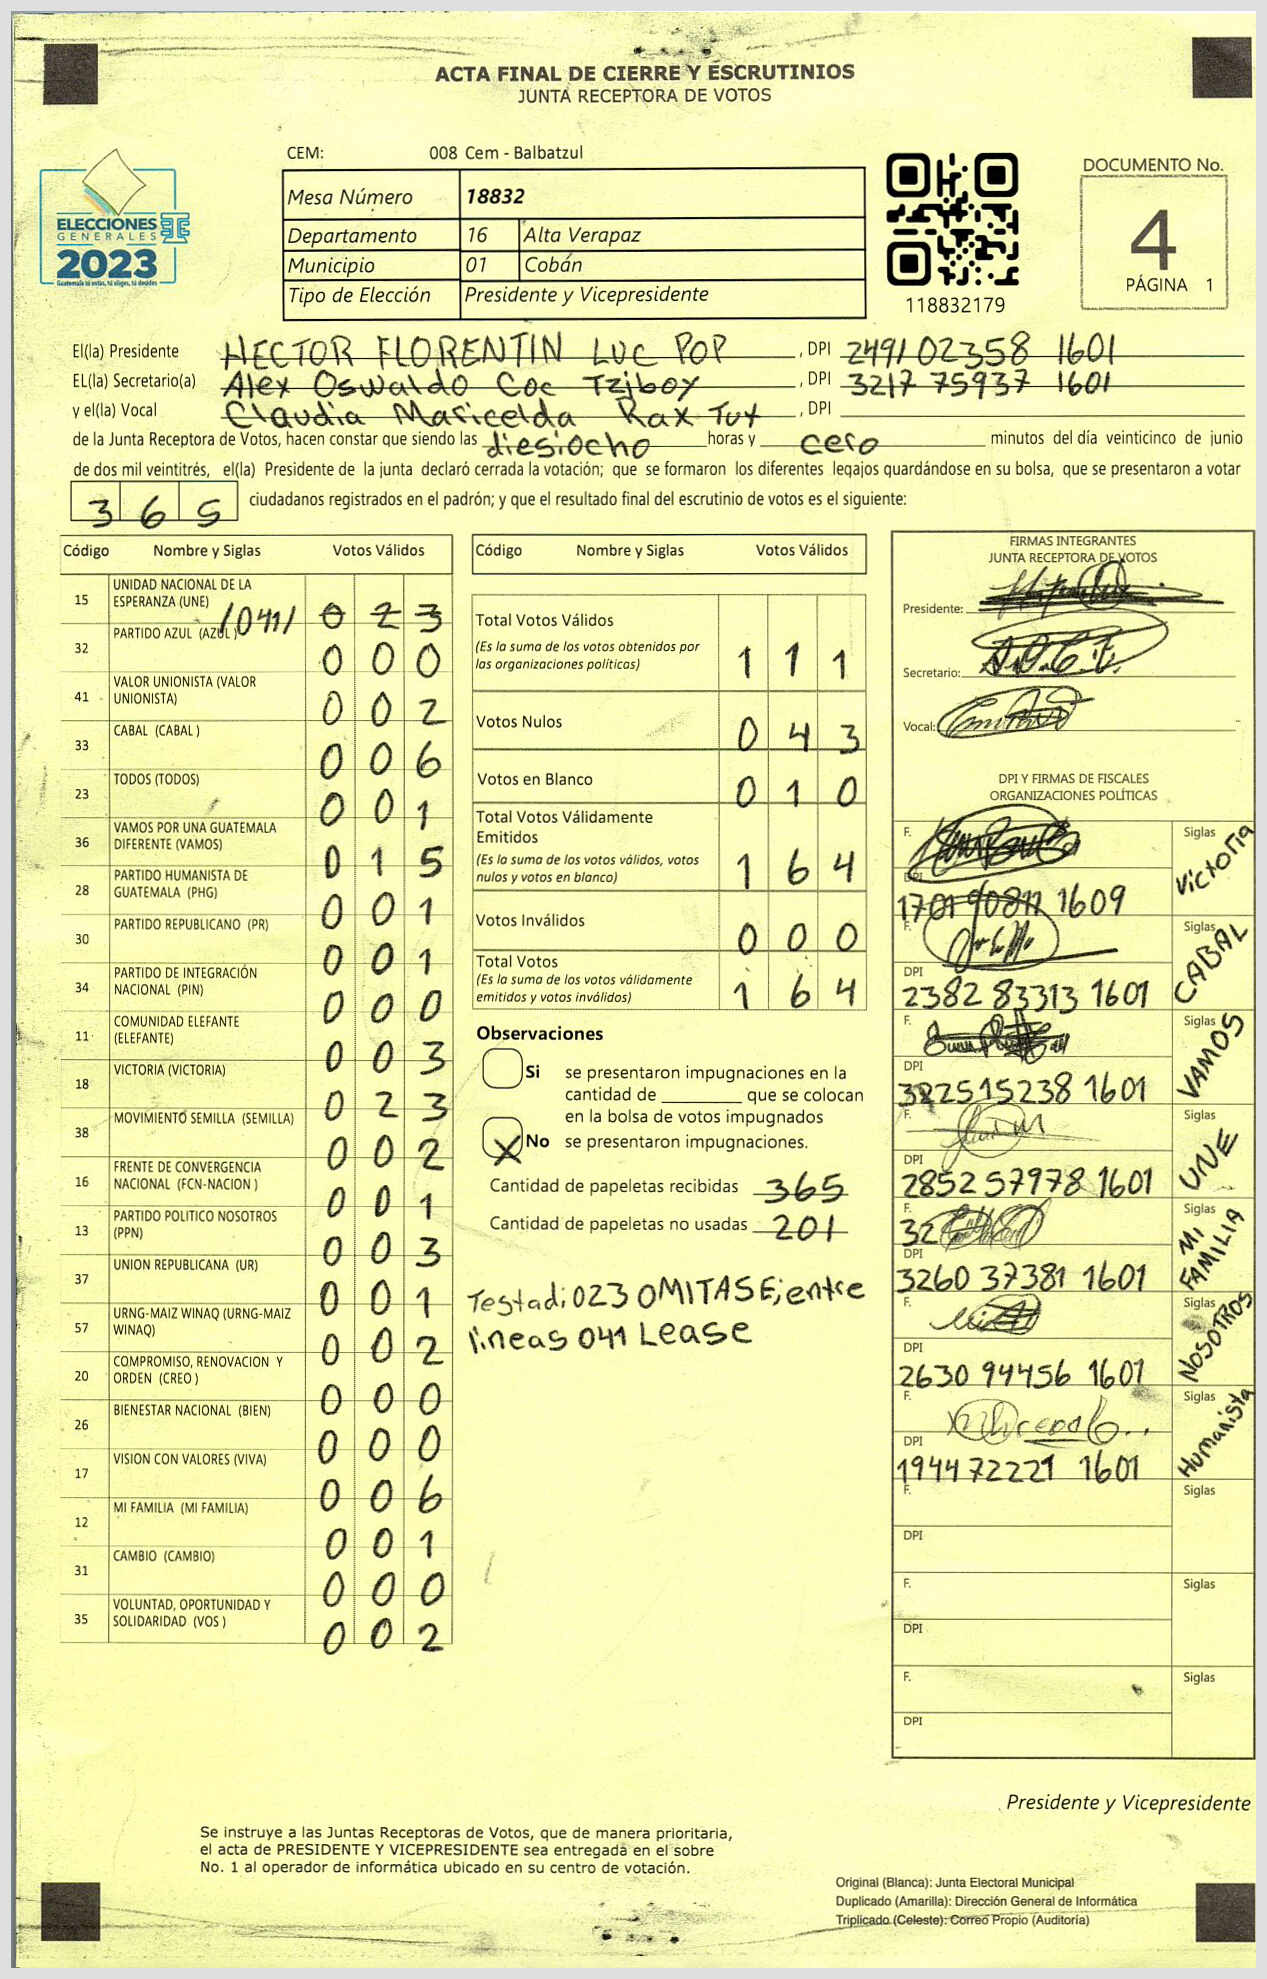 ACTA FINAL DE CIERRE Y ESCRUTINIOS
JUNTA RECEPTORA DE VOTOS
CEM: 008 Cem - Balbatzul
ELECCIONES
GENERALES
2023
Guatemala tú estás, tú eliges, tú decides
Mesa Número 18832
Departamento 16 Alta Verapaz
Municipio 01 Cobán
Tipo de Elección Presidente y Vicepresidente
118832179
DOCUMENTO No.
4
PÁGINA 1
El(la) Presidente HECTOR FLORENTIN LUC POP, DPI 2491 02358 1601
EL(la) Secretario(a) Alex Oswaldo Coc Tziboy, DPI 3217 75937 1601
y el(la) Vocal Claudia Maricelda Rax Tut, DPI
de la Junta Receptora de Votos, hacen constar que siendo las diesiocho horas y cero minutos del día veinticinco de junio
de dos mil veintitrés, el(la) Presidente de la junta declaró cerrada la votación; que se formaron los diferentes legajos quardándose en su bolsa, que se presentaron a votar
365 ciudadanos registrados en el padrón; y que el resultado final del escrutinio de votos es el siguiente:
Código Nombre y Siglas Votos Válidos
15 UNIDAD NACIONAL DE LA ESPERANZA (UNE) /041/ 0 2 3
32 PARTIDO AZUL (AZUL) 0 0 0
41 VALOR UNIONISTA (VALOR UNIONISTA) 0 0 2
33 CABAL (CABAL ) 0 0 6
23 TODOS (TODOS) 0 0 1
36 VAMOS POR UNA GUATEMALA DIFERENTE (VAMOS) 0 1 5
28 PARTIDO HUMANISTA DE GUATEMALA (PHG) 0 0 1
30 PARTIDO REPUBLICANO (PR) 0 0 1
34 PARTIDO DE INTEGRACIÓN NACIONAL (PIN) 0 0 0
11 COMUNIDAD ELEFANTE (ELEFANTE) 0 0 3
18 VICTORIA (VICTORIA) 0 2 3
38 MOVIMIENTO SEMILLA (SEMILLA) 0 0 2
16 FRENTE DE CONVERGENCIA NACIONAL (FCN-NACION ) 0 0 1
13 PARTIDO POLITICO NOSOTROS (PPN) 0 0 3
37 UNION REPUBLICANA (UR) 0 0 1
57 URNG-MAIZ WINAQ (URNG-MAIZ WINAQ) 0 0 2
20 COMPROMISO, RENOVACION Y ORDEN (CREO ) 0 0 0
26 BIENESTAR NACIONAL (BIEN) 0 0 0
17 VISION CON VALORES (VIVA) 0 0 6
12 MI FAMILIA (MI FAMILIA) 0 0 1
31 CAMBIO (CAMBIO) 0 0 0
35 VOLUNTAD, OPORTUNIDAD Y SOLIDARIDAD (VOS ) 0 0 2
Código Nombre y Siglas Votos Válidos
Total Votos Válidos
(Es la suma de los votos obtenidos por
las organizaciones políticas) 1 1 1
Votos Nulos 0 4 3
Votos en Blanco 0 1 0
Total Votos Válidamente
Emitidos
(Es la suma de los votos válidos, votos
nulos y votos en blanco) 1 6 4
Votos Inválidos 0 0 0
Total Votos
(Es la suma de los votos válidamente
emitidos y votos inválidos) 1 6 4
Observaciones
Si se presentaron impugnaciones en la
cantidad de ________ que se colocan
en la bolsa de votos impugnados
X No se presentaron impugnaciones.
Cantidad de papeletas recibidas 365
Cantidad de papeletas no usadas 201
Testadi 023 OMITASE; entre
lineas 041 Lease
FIRMAS INTEGRANTES
JUNTA RECEPTORA DE VOTOS
Presidente:
Secretario:
Vocal:
DPI Y FIRMAS DE FISCALES
ORGANIZACIONES POLÍTICAS
F. Siglas Victoria
DPI 1701 90811 1609
F. Siglas CABAL
DPI 2382 83313 1601
F. Siglas VAMOS
DPI 3225 15238 1601
F. Siglas UNE
DPI 2852 57978 1601
F. 32 Siglas MI FAMILIA
DPI 3260 37381 1601
F. Siglas NOSOTROS
DPI 2630 94456 1601
F. Siglas Humanista
DPI 1944 72221 1601
F. Siglas
DPI
F. Siglas
DPI
F. Siglas
DPI
Presidente y Vicepresidente
Se instruye a las Juntas Receptoras de Votos, que de manera prioritaria,
el acta de PRESIDENTE Y VICEPRESIDENTE sea entregada en el sobre
No. 1 al operador de informática ubicado en su centro de votación.
Original (Blanca): Junta Electoral Municipal
Duplicado (Amarilla): Dirección General de Informática
Triplicado (Celeste): Correo Propio (Auditoría)